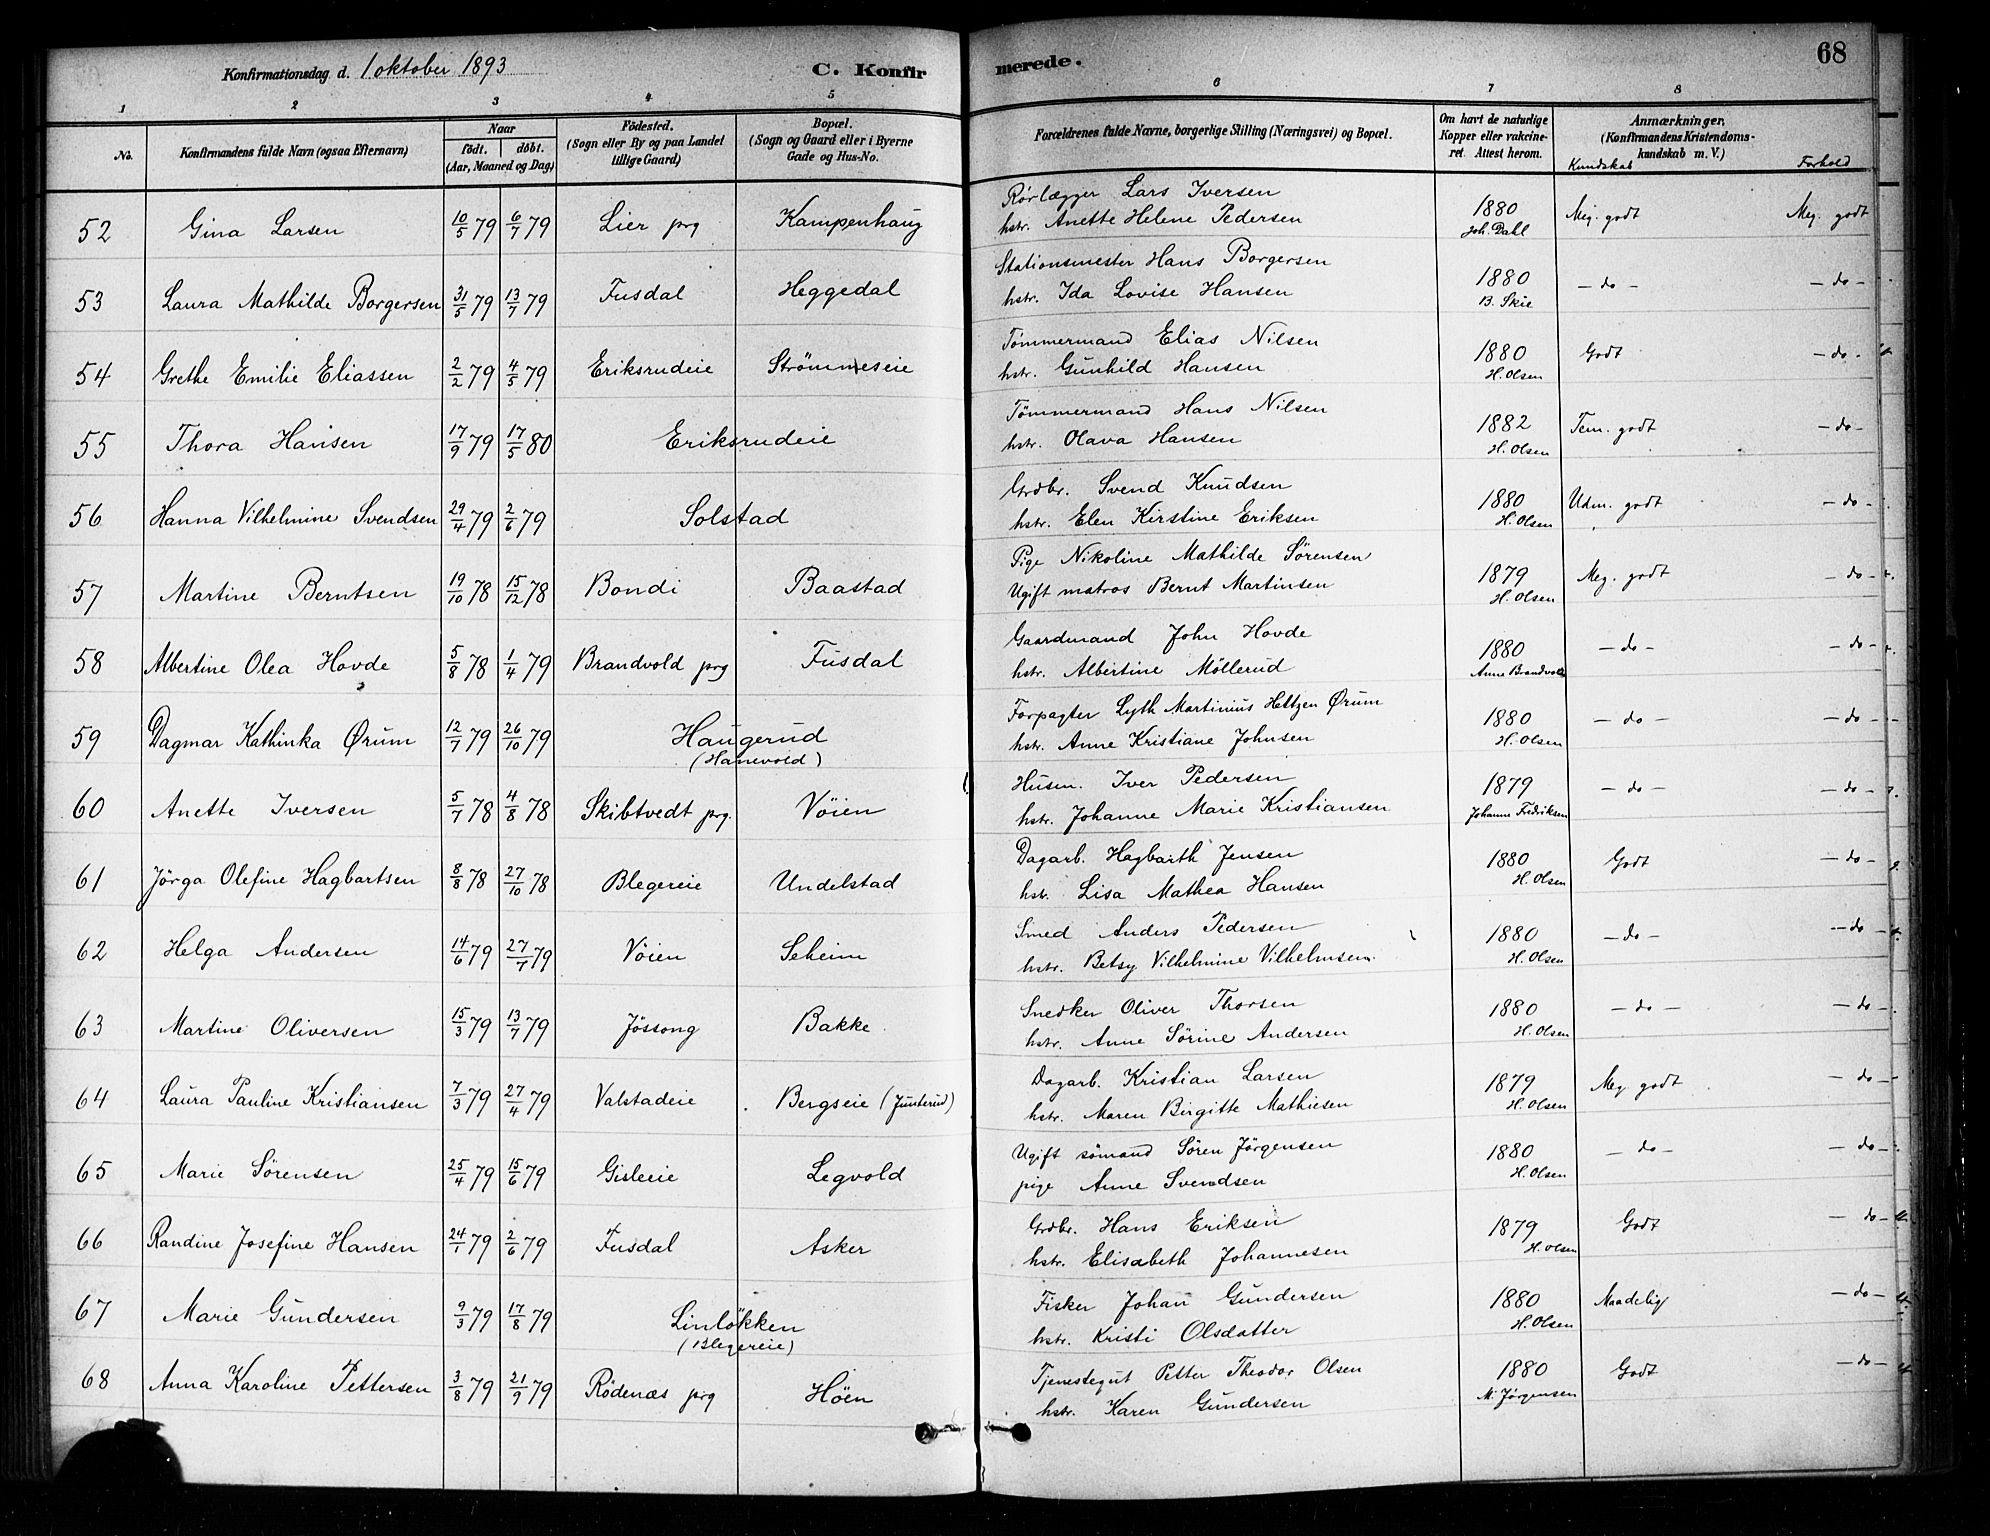 Konfirmationsdag d. 1 oktober 1893
C. Konfirmerede.
68
1 2 3 4 5 6 7 8
No.
Konfirmandens fulde Navn (ogsaa Efternavn)
Naar
født. døbt.
(Aar, Maaned og Dag)
Fødested.
(Sogn eller By og paa Landet tillige Gaard)
Bopæl.
(Sogn og Gaard eller i Byerne Gade og Hus-No.
Forældrenes fulde Navne, borgerlige Stilling (Næringsvei) og Bopæl.
Om havt de naturlige Kopper eller vakcineret. Attest herom.
Anmærkninger,
(Konfirmandens Kristendomskundskab m. V.)
Kundskab Forhold
52 Gina Larsen 10/5 79 6/7 79 Lier prg Kampenhaug Rørlægger Lars Iversen 1880 Meg. godt Meg. godt
hstr. Anette Helene Pedersen Joh. Dahl
53 Laura Mathilde Borgersen 31/5 79 13/7 79 Fusdal Heggedal Stationsmester Hans Borgersen 1880 - do - - do -
hstr. Ida Lovise Hansen B. Skie
54 Grethe Emilie Eliassen 2/2 79 4/5 79 Eriksrudeie Strømmeseie Tømmermand Elias Nilsen 1880 Godt - do -
hstr. Gunhild Hansen H. Olsen
55 Thora Hansen 17/9 79 17/5 80 Eriksrudeie Tømmermand Hans Nilsen 1882 Tem. godt - do -
hstr. Olava Hansen H. Olsen
56 Hanna Vilhelmine Svendsen 29/4 79 2/6 79 Solstad Grdbr. Svend Knudsen 1880 Udm. godt - do -
hstr. Elen Kirstine Eriksen H. Olsen
57 Martine Berntsen 19/10 78 15/12 78 Bondi Baastad Pige Nikoline Mathilde Sørensen 1879 Meg. godt - do -
Ugift matros Bernt Martinsen H. Olsen
58 Albertine Olea Hovde 5/8 78 1/4 79 Brandvold prg Fusdal Gaardmand John Hovde 1880 - do - - do -
hstr. Albertine Möllerud Anne Brandvold
59 Dagmar Kathinka Ørum 12/7 79 26/10 79 Haugerud Forpagter Lyth Martinius Heltzen Ørum 1880 - do - - do -
(Hanevold) hstr. Anne Kristiane Johnsen H. Olsen
60 Anette Iversen 5/7 78 4/8 78 Skibtvedt prg. Vöien Husm. Iver Pedersen 1879 - do - - do -
hstr. Johanne Marie Kristiansen Johanne Fredriksen
61 Jörga Olefine Hagbartsen 8/8 78 27/10 78 Blegereie Undelstad Dagarb. Hagbarth Jensen 1880 Godt - do -
hstr. Lisa Mathea Hansen H. Olsen
62 Helga Andersen 14/6 79 27/7 79 Vöien Seheim Smed Anders Pedersen 1880 - do - - do -
hstr. Betsy Vilhelmine Vilhelmsen. H. Olsen
63 Martine Oliversen 15/3 79 13/7 79 Jössong Bakke Snedker Oliver Thorsen 1880 - do - - do -
hstr. Anne Sörine Andersen H. Olsen
64 Laura Pauline Kristiansen 7/3 79 27/4 79 Valstadeie Bergseie (Junterud) Dagarb. Kristian Larsen 1879 Meg godt - do -
hstr. Maren Birgitte Mathiesen H. Olsen
65 Marie Sörensen 25/4 79 15/6 79 Gisleeie Legvold Ugift sömand Sören Jörgensen 1880 - do - - do -
pige Anne Svendsen H. Olsen
66 Randine Josefine Hansen 24/1 79 2/6 79 Fusdal Asker Grdbr. Hans Eriksen 1879 Godt - do -
hstr. Elisabeth Johannesen H. Olsen
67 Marie Gundersen 9/3 79 17/8 79 Linlökken Fisker Johan Gundersen 1880 Maadelig - do -
(Blegereie) hstr. Kristi Olsdatter H. Olsen
68 Anna Karoline Pettersen 3/8 79 21/9 79 Rödenæs prg Höen Tjenestegut Petter Theodor Olsen 1880 Godt - do -
hstr. Karen Gundersen M. Jörgensen